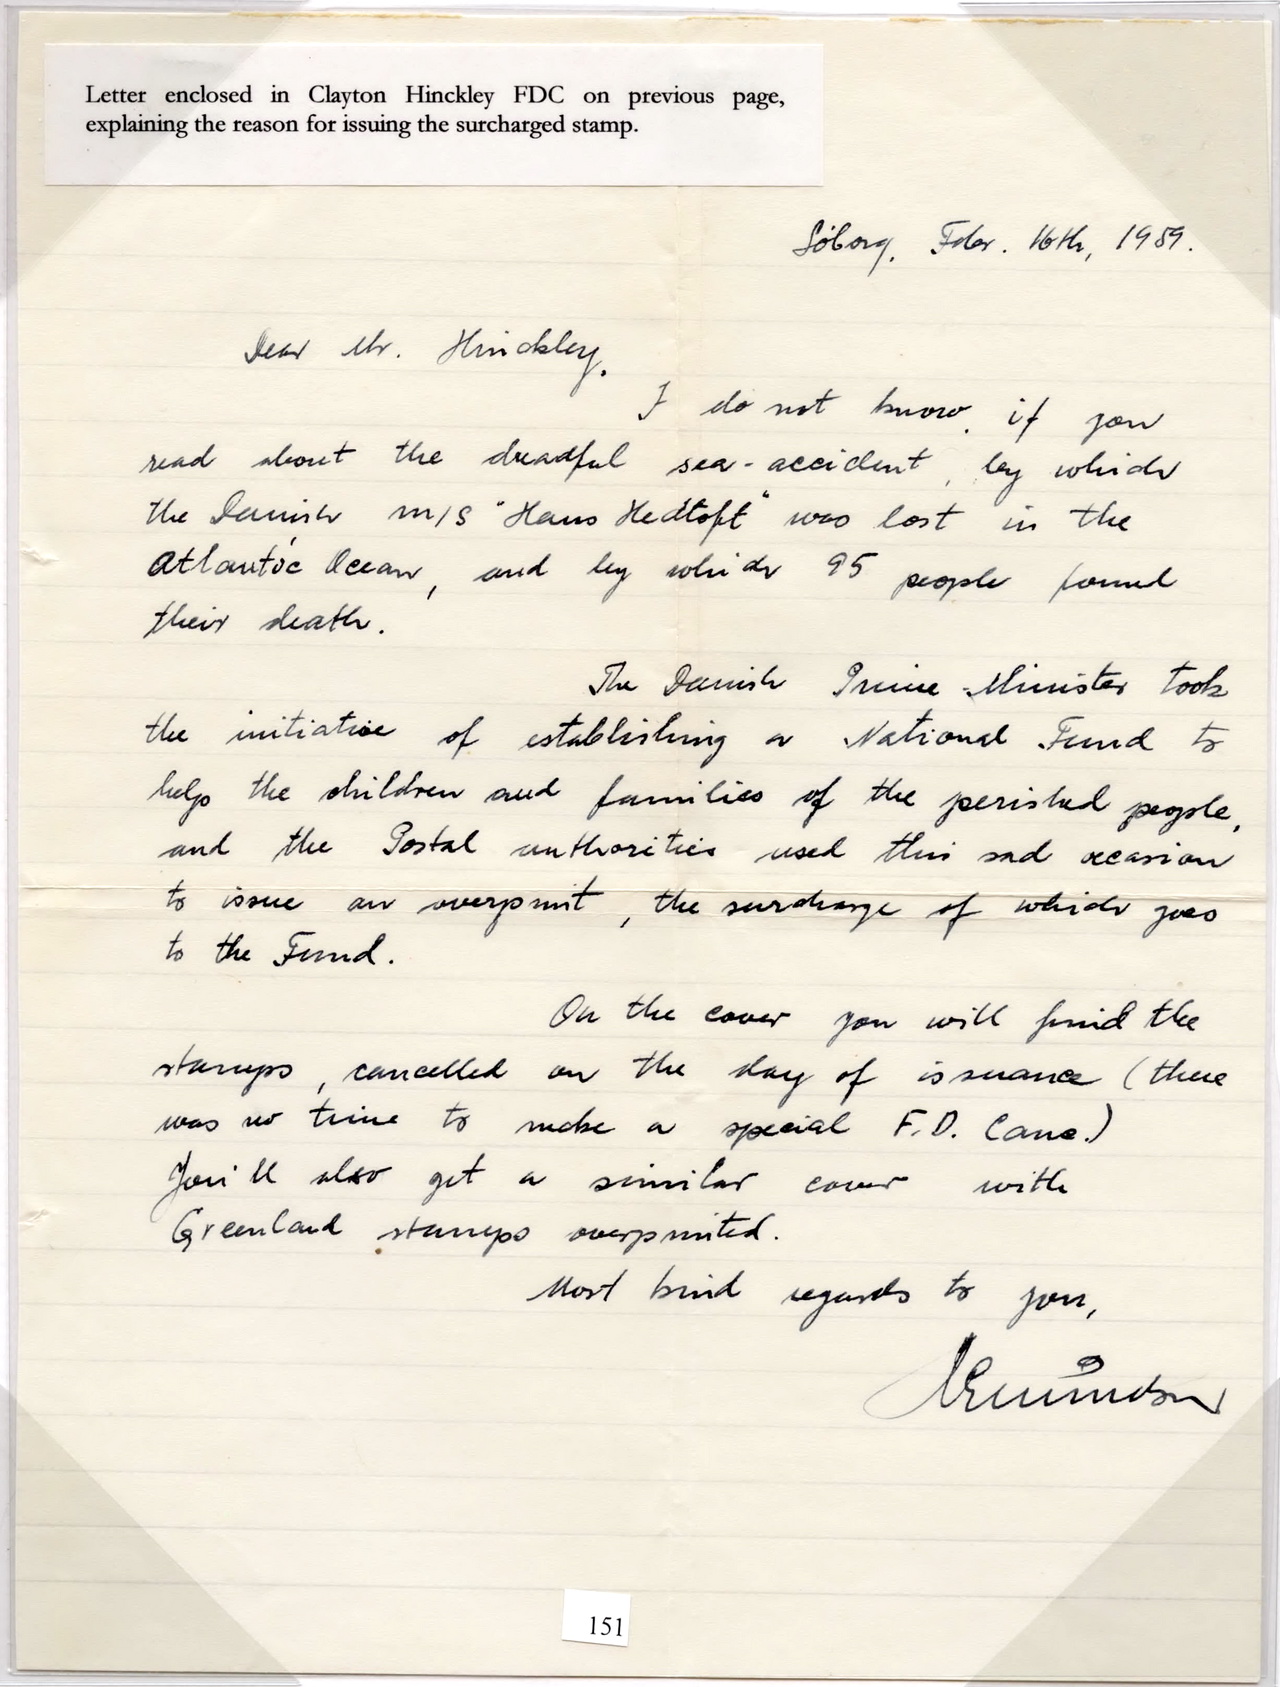 Letter enclosed in Clayton Hinckley FDC on previous page,
explaining the reason for issuing the surcharged stamp.
Söborg, Febr. 16th, 1959.
Dear Mr. Hinckley,
I do not know, if you
read about the dreadful sea-accident, by which
the Danish m/s "Hans Hedtoft" was lost in the
Atlantic Ocean, and by which 95 people found
their death.
The Danish Prime-Minister took
the initiative of establishing a National Fund to
help the children and families of the perished people,
and the Postal authorities used this sad occasion
to issue an overprint, the surcharge of which goes
to the Fund.
On the cover you will find the
stamps, cancelled on the day of issuance (there
was no time to make a special F.D. Canc.)
You'll also get a similar cover with
Greenland stamps overprinted.
Most kind regards to you,
151